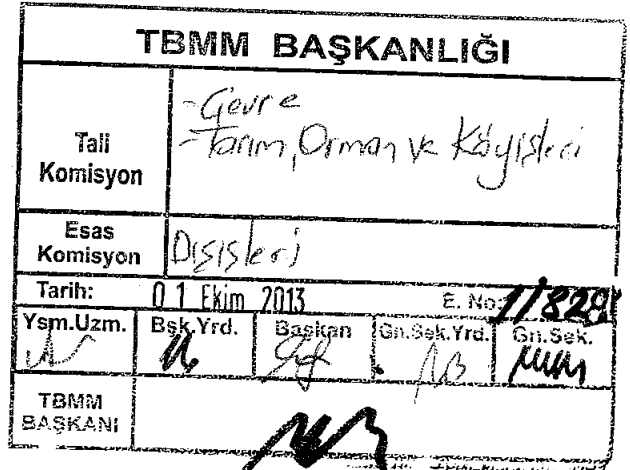 TBMM BAŞKANLIĞI
Tali Komisyon
- Çevre
- Tarım, Orman ve Köyişleri
Esas Komisyon
Dışişleri
Tarih: 01 Ekim 2013 E. No: 1/828
Ysm.Uzm. Bşk.Yrd. Başkan Gn.Sek.Yrd. Gn.Sek.
TBMM BAŞKANI